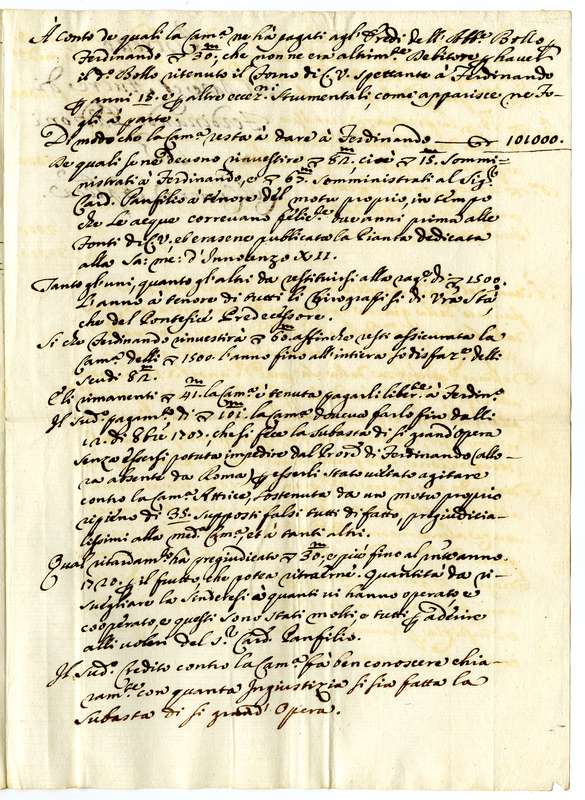 A Conto de quali la Cam.ª ne hà pagati agl'Eredi dell'Abb.e Bollo
Ferdinando ∇ 30, che non ne era altrim.te Debitore, p haver
il d.º Bollo ritenuto il Forno di C.V. spettante à Ferdinando
p anni 15. e p altre eccez.ni Strumentali, come apparisce ne Fo-
gli à parte.
Di modo che la Cam.ª resta à dare à Ferdinando 101000.
De quali se ne devono investire ∇ 82. cioè ∇ 15. Sommi-
nistrati à Ferdinando, e ∇ 67. Somministrati al Sig.r
Card. Panfilio à tenore del motu proprio, in tempo
che le acque correvano felic.te due anni prima alle
Fonti di C.V. ed erasene publicata la Pianta dedicata
alla Sa: me: d'Innocenzo XII.
Tanto gl'uni, quanto gl'altri da restituirsi alla rag.e di ∇ 1500.
l'anno à tenore di tutti li Chirografi sì di V'ra S.tà,
che del Pontefice Predecessore.
Si che Ferdinando investirà ∇ 60. affinche resti assicurata la
Cam.ª delli ∇ 1500. l'anno fino all'intiera sodisfaz.e delli
scudi 82.
E li rimanenti ∇ 41. la Cam.ª è tenuta pagarli liber.te à Ferdin.º
Il Sud.º pagam.to di ∇ 101. la Cam.ª doveva farlo fin dalli
12. di 8bre 1707. che si fece la Subasta di sì grand'Opera
senza essersi potuta impedire dal Proc.re di Ferdinando (allo-
ra absente da Roma) p esserli stato vietato agitare
contro la Cam.ª Attice, sostenuta da un motu proprio
ripieno di 35. supposti falsi tutti di fatto, pregiudicia-
lissimi alla med.ª Cam.ª, et à tanti altri.
Qual ritardam.to hà pregiudicato ∇ 30. e più fino al p'nte anno
1720. p il frutto, che potea ritraerne. Quantità da ri-
svegliare la Sinderesi à quanti vi hanno operato e
cooperato, e questi sono stati molti, e tutti p aderire
alli voleri del S.r Card. Panfilio.
Il Sud.º Credito contro la Cam.ª fà ben conoscere chia-
ram.te con quanta Ingiustizia si sia fatta la
Subasta di sì grand'Opera.